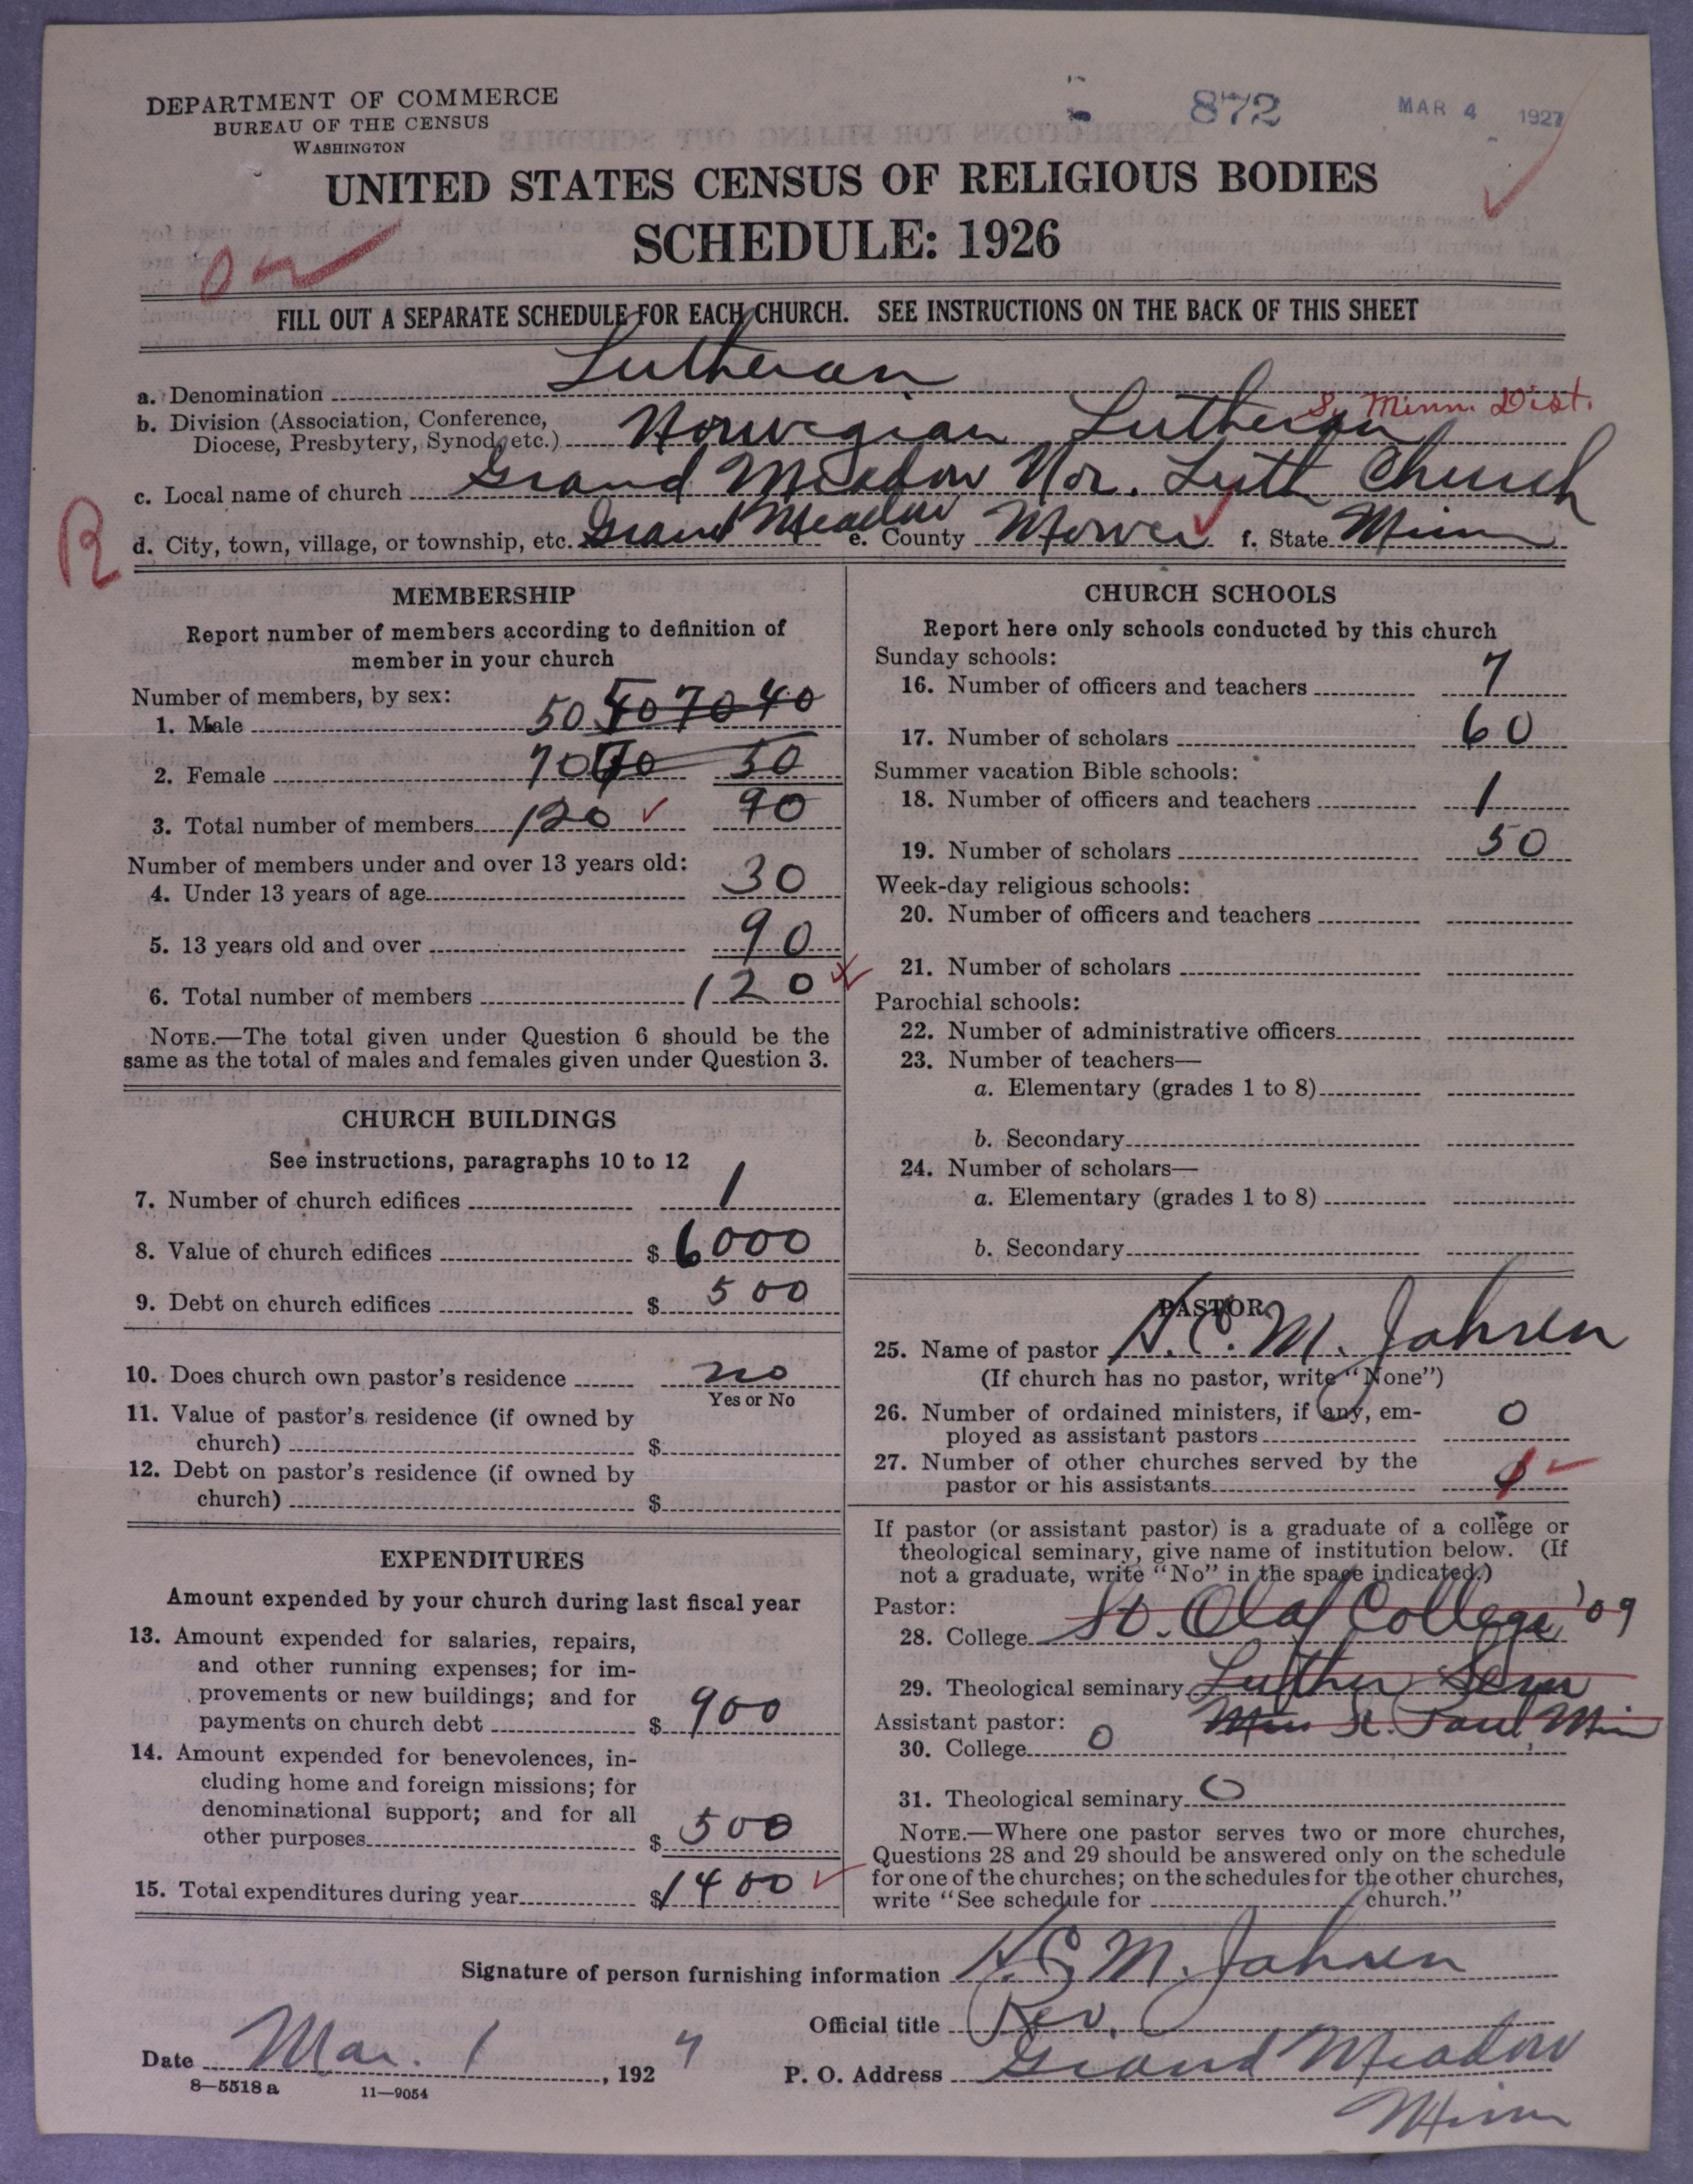 DEPARTMENT OF COMMERCE
BUREAU OF THE CENSUS
WASHINGTON
872
MAR 4 1927
UNITED STATES CENSUS OF RELIGIOUS BODIES
SCHEDULE: 1926
FILL OUT A SEPARATE SCHEDULE FOR EACH CHURCH. SEE INSTRUCTIONS ON THE BACK OF THIS SHEET
a. Denomination Lutheran
S. Minn. Dist.
b. Division (Association, Conference,
Diocese, Presbytery, Synod, etc.) Norwegian Lutheran
c. Local name of church Grand Meadow Nor. Luth Church
R
d. City, town, village, or township, etc. Grand Meadow e. County Mower f. State Minn
MEMBERSHIP
Report number of members according to definition of
member in your church
Number of members, by sex:
1. Male 50 50 70 40
2. Female 70 50
3. Total number of members 120 ✓ 90
Number of members under and over 13 years old:
4. Under 13 years of age 30
5. 13 years old and over 90
6. Total number of members 120
NOTE.—The total given under Question 6 should be the
same as the total of males and females given under Question 3.
CHURCH BUILDINGS
See instructions, paragraphs 10 to 12
7. Number of church edifices 1
8. Value of church edifices $ 6000
9. Debt on church edifices $ 500
10. Does church own pastor's residence no
Yes or No
11. Value of pastor's residence (if owned by
church) $
12. Debt on pastor's residence (if owned by
church) $
EXPENDITURES
Amount expended by your church during last fiscal year
13. Amount expended for salaries, repairs,
and other running expenses; for im-
provements or new buildings; and for
payments on church debt $ 900
14. Amount expended for benevolences, in-
cluding home and foreign missions; for
denominational support; and for all
other purposes $ 500
15. Total expenditures during year $ 1400 ✓
CHURCH SCHOOLS
Report here only schools conducted by this church
Sunday schools:
16. Number of officers and teachers 7
17. Number of scholars 60
Summer vacation Bible schools:
18. Number of officers and teachers 1
19. Number of scholars 50
Week-day religious schools:
20. Number of officers and teachers
21. Number of scholars
Parochial schools:
22. Number of administrative officers
23. Number of teachers—
a. Elementary (grades 1 to 8)
b. Secondary
24. Number of scholars—
a. Elementary (grades 1 to 8)
b. Secondary
PASTOR
25. Name of pastor H.C.M. Jahren
(If church has no pastor, write "None")
26. Number of ordained ministers, if any, em-
ployed as assistant pastors 0
27. Number of other churches served by the
pastor or his assistants
If pastor (or assistant pastor) is a graduate of a college or
theological seminary, give name of institution below. (If
not a graduate, write "No" in the space indicated.)
Pastor:
28. College St. Olaf College '09
29. Theological seminary Luther Sem
St. Paul Min
Assistant pastor:
30. College 0
31. Theological seminary 0
NOTE.—Where one pastor serves two or more churches,
Questions 28 and 29 should be answered only on the schedule
for one of the churches; on the schedules for the other churches,
write "See schedule for church."
Signature of person furnishing information H.C.M. Jahren
Official title Rev.
Date Mar. 1, 1927
P. O. Address Grand Meadow
Minn
8—5518 a 11—9054